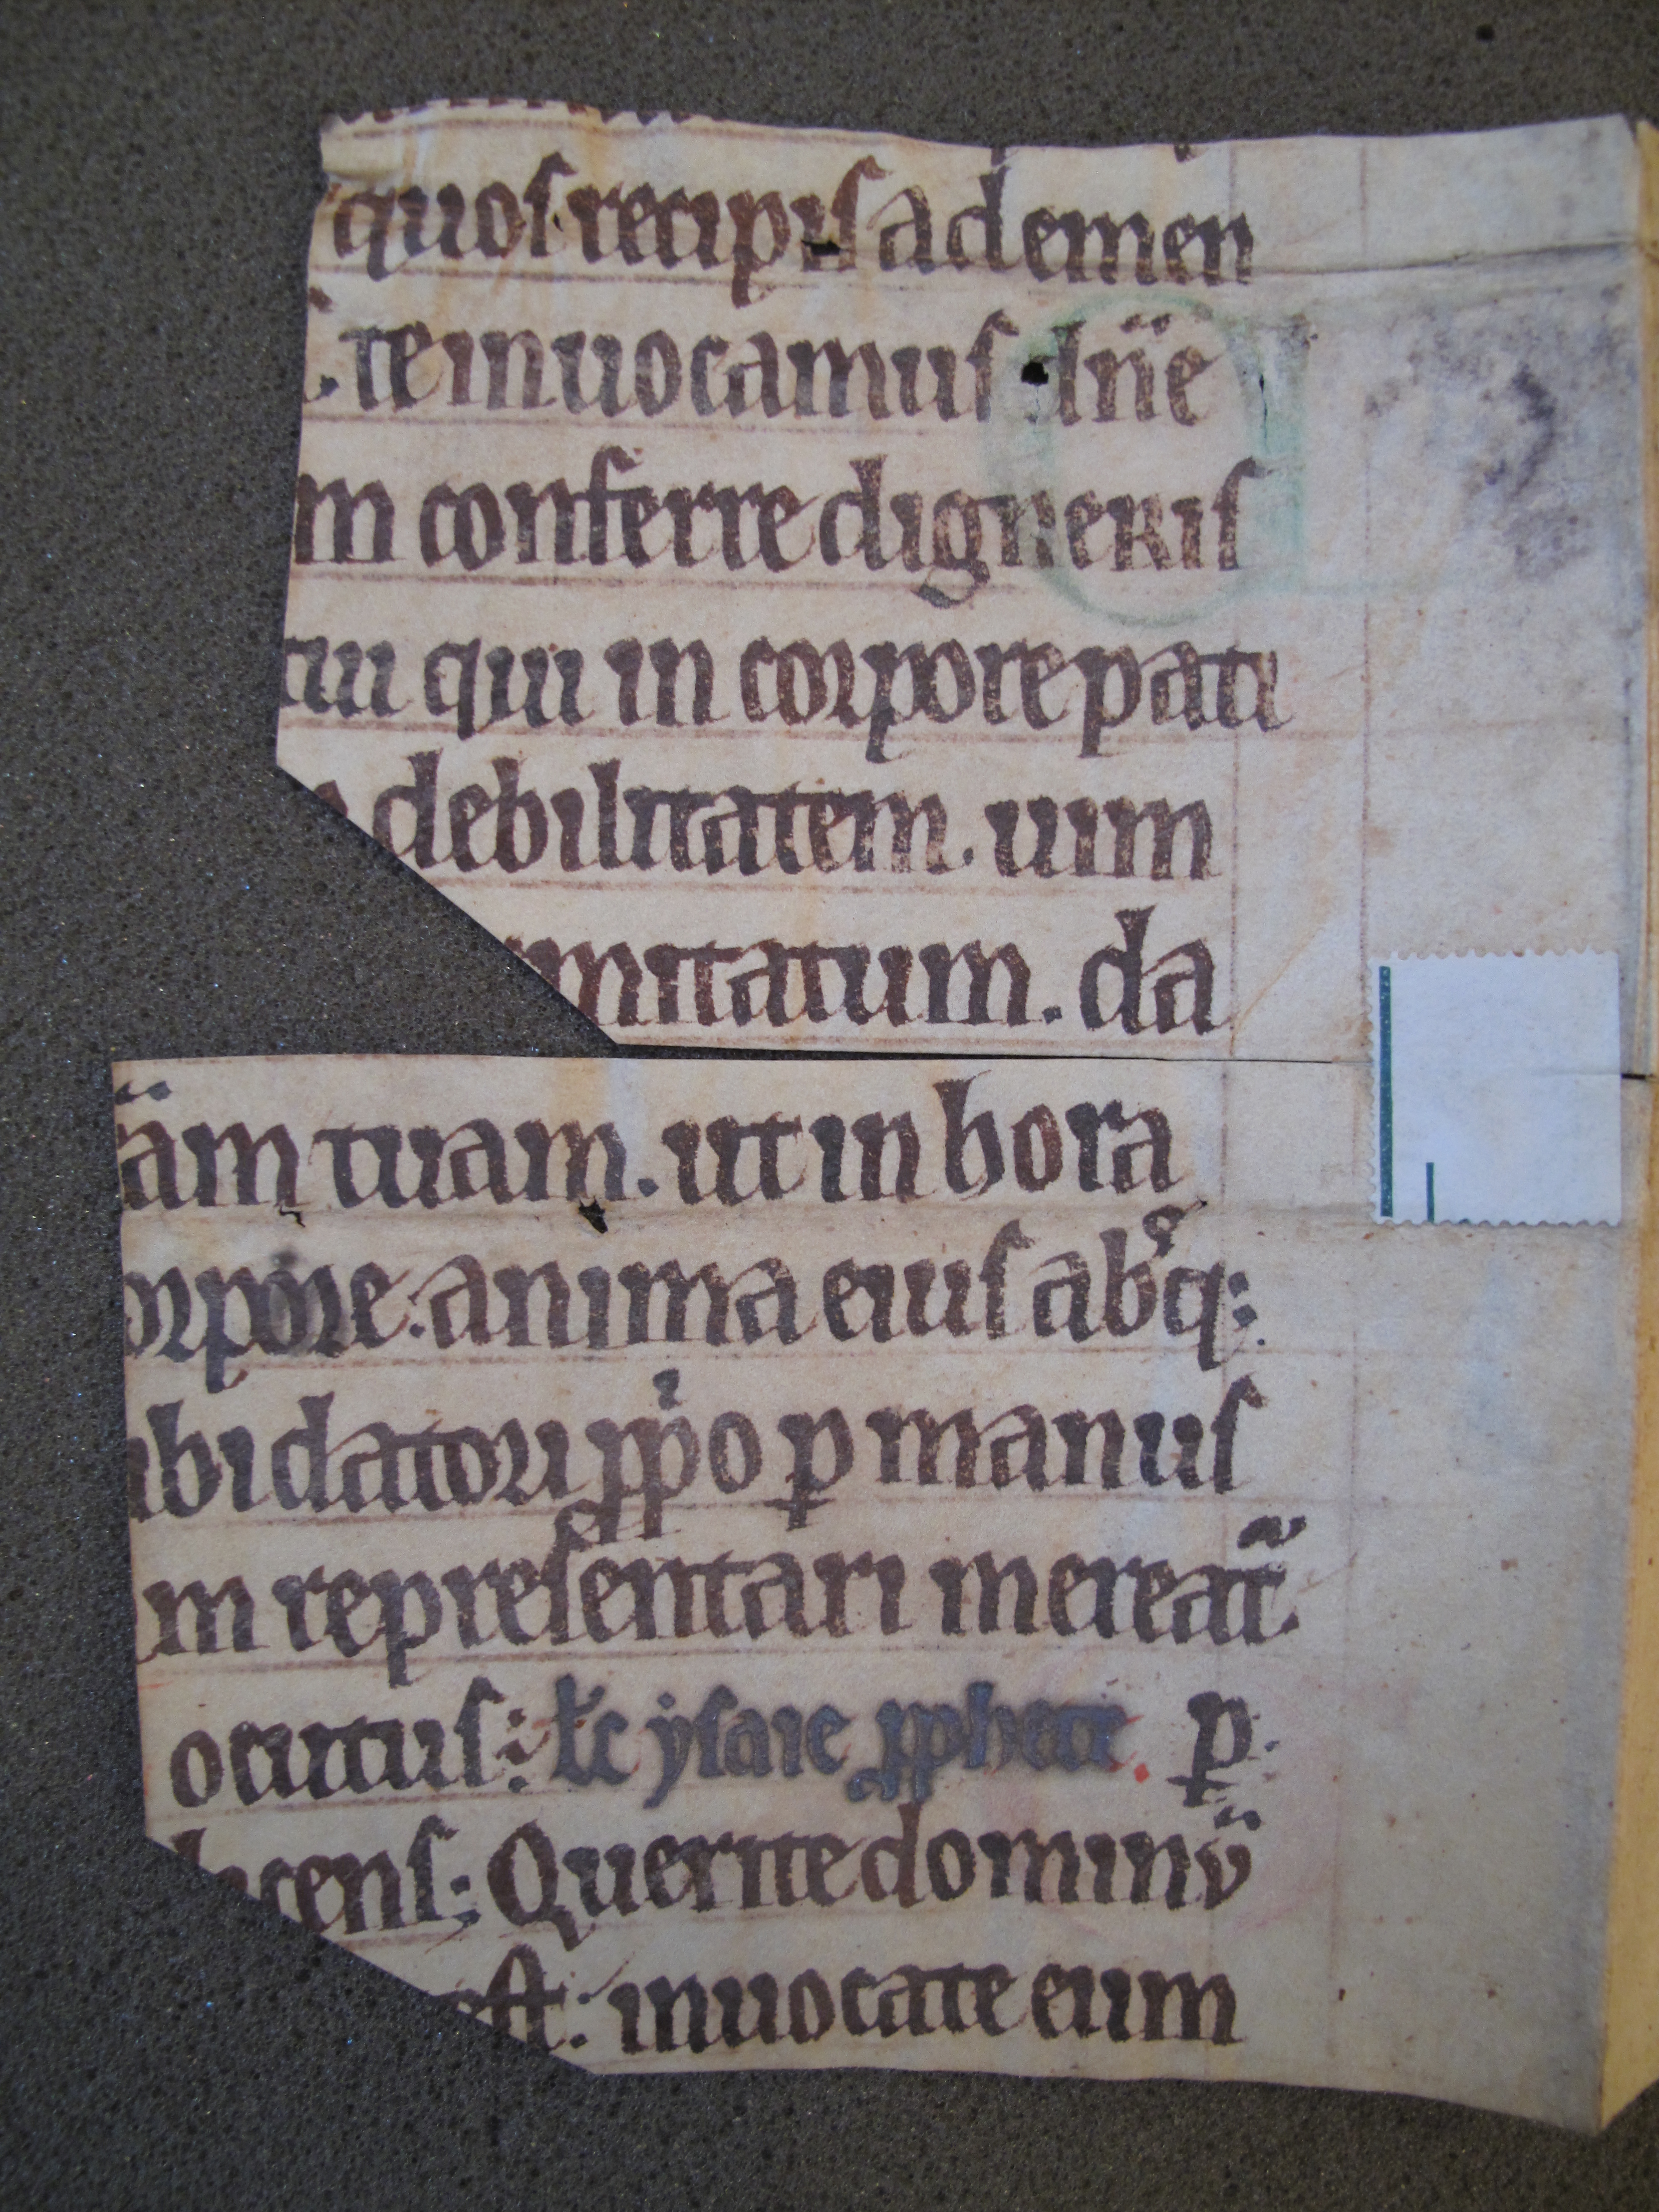 quos recipis ad emen
. te inuocamus dn̄e
m conferre digneris
tui qui in corpore pati
debilitatem. uim
mitatum. da
am tuam. ut in hora
orpore. anima eius absq:
bi datori pp̄o ꝑ manus
m representari mereat̄.
ocuitus: łc ysaie ꝓphete. ꝑ.
icens: Querite dominū
est: inuocate eum